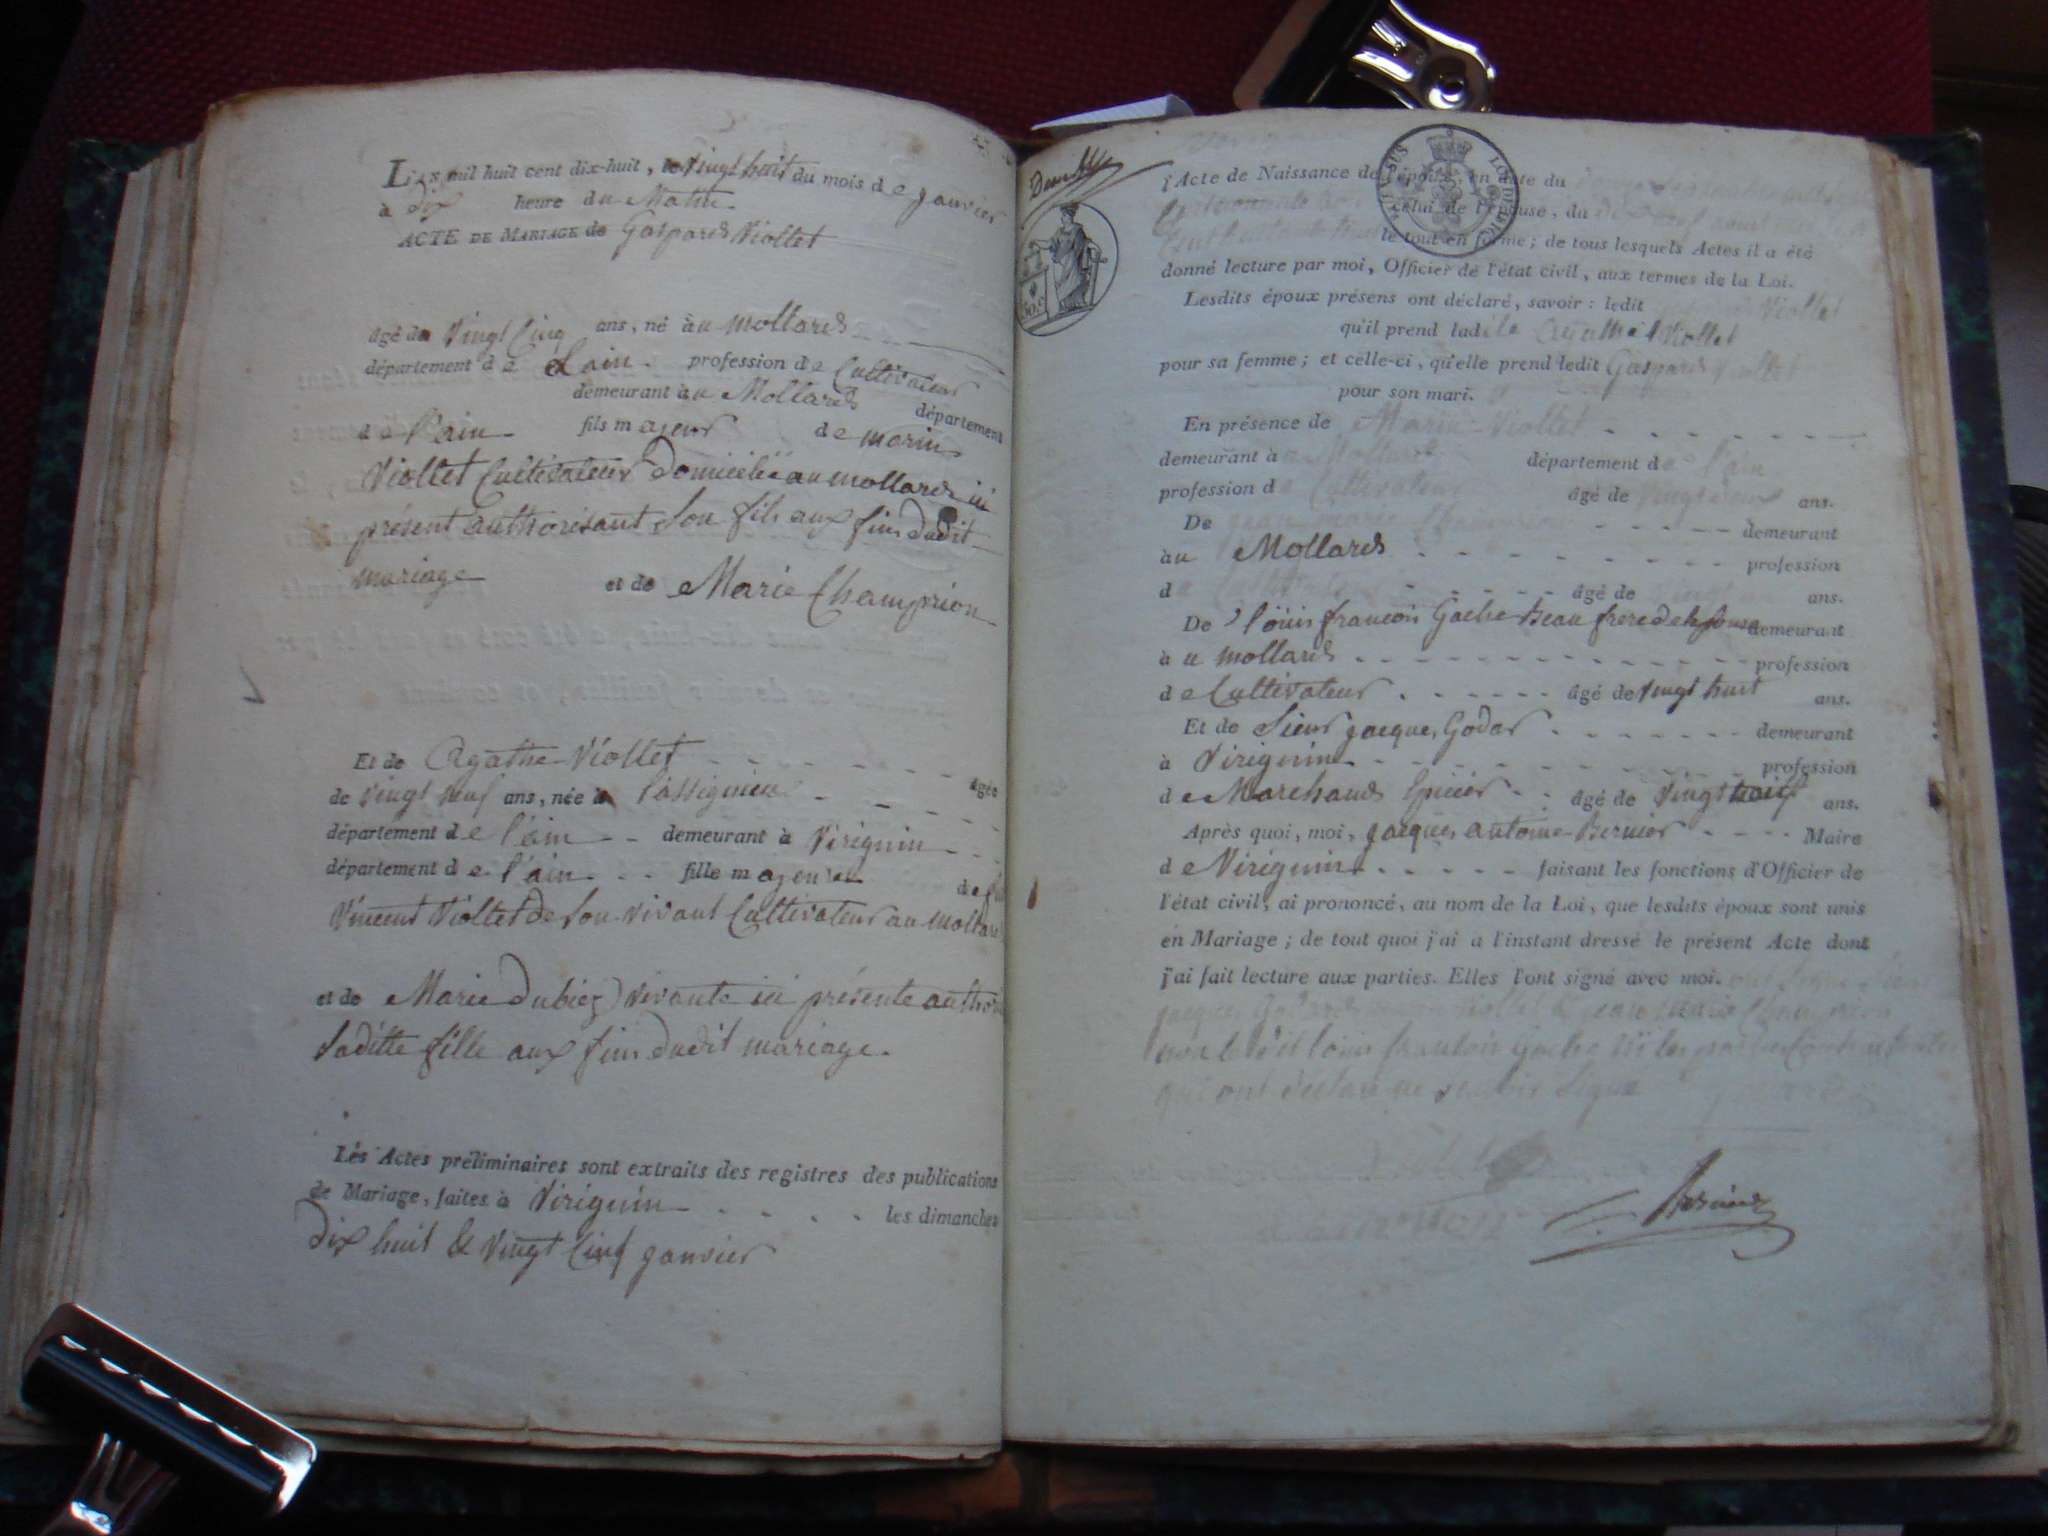 L'AN mil huit cent dix-huit, le vingt huit du mois de janvier
à dix heure du Matin
ACTE DE MARIAGE de Gaspard Viollet
âgé de vingt cinq ans, né au mollard
département de Lain profession de Cultivateur
demeurant au Mollard département
de l'ain fils majeur de marin
Viollet Cultivateur domicilié au mollard ici
présent authorisant son fils aux fins dudit
mariage et de Marie Champion
Et de Agathe Viollet âgée
de vingt neuf ans, née à
département de l'ain demeurant à Virignin
département de l'ain fille majeure de
Vincent Viollet de son vivant Cultivateur au mollard
et de Marie Dubiez vivante ici présente
saditte fille aux fins dudit mariage.
Les Actes préliminaires sont extraits des registres des publications
de Mariage, faites à Virignin les dimanches
dix huit & vingt cinq janvier
l'Acte de Naissance de l'époux, en date du
celui de l'épouse, du
le tout en forme; de tous lesquels Actes il a été
donné lecture par moi, Officier de l'état civil, aux termes de la Loi.
Lesdits époux présens ont déclaré, savoir: ledit Viollet
qu'il prend ladite Agathe Viollet
pour sa femme; et celle-ci, qu'elle prend ledit Gaspard Viollet
pour son mari.
En présence de Marin Viollet
demeurant à Mollard département de l'ain
profession de Cultivateur âgé de ans.
De jean marie Champion demeurant
au Mollard profession
d âgé de vingt ans.
De louis francois Gache Beau frere de demeurant
au mollard profession
de Cultivateur âgé de vingt huit ans.
Et de Sieur jacques Godar demeurant
à Virignin profession
de Marchand Epicier âgé de vingt ans.
Après quoi, moi, jacques antoine Bernier Maire
de Virignin faisant les fonctions d'Officier de
l'état civil, ai prononcé, au nom de la Loi, que lesdits époux sont unis
en Mariage; de tout quoi j'ai à l'instant dressé le présent Acte dont
j'ai fait lecture aux parties. Elles l'ont signé avec moi.
jacques Godard Viollet & jean marie Champion
non louis francois Gache
qui ont déclaré ne savoir signer
Bernier